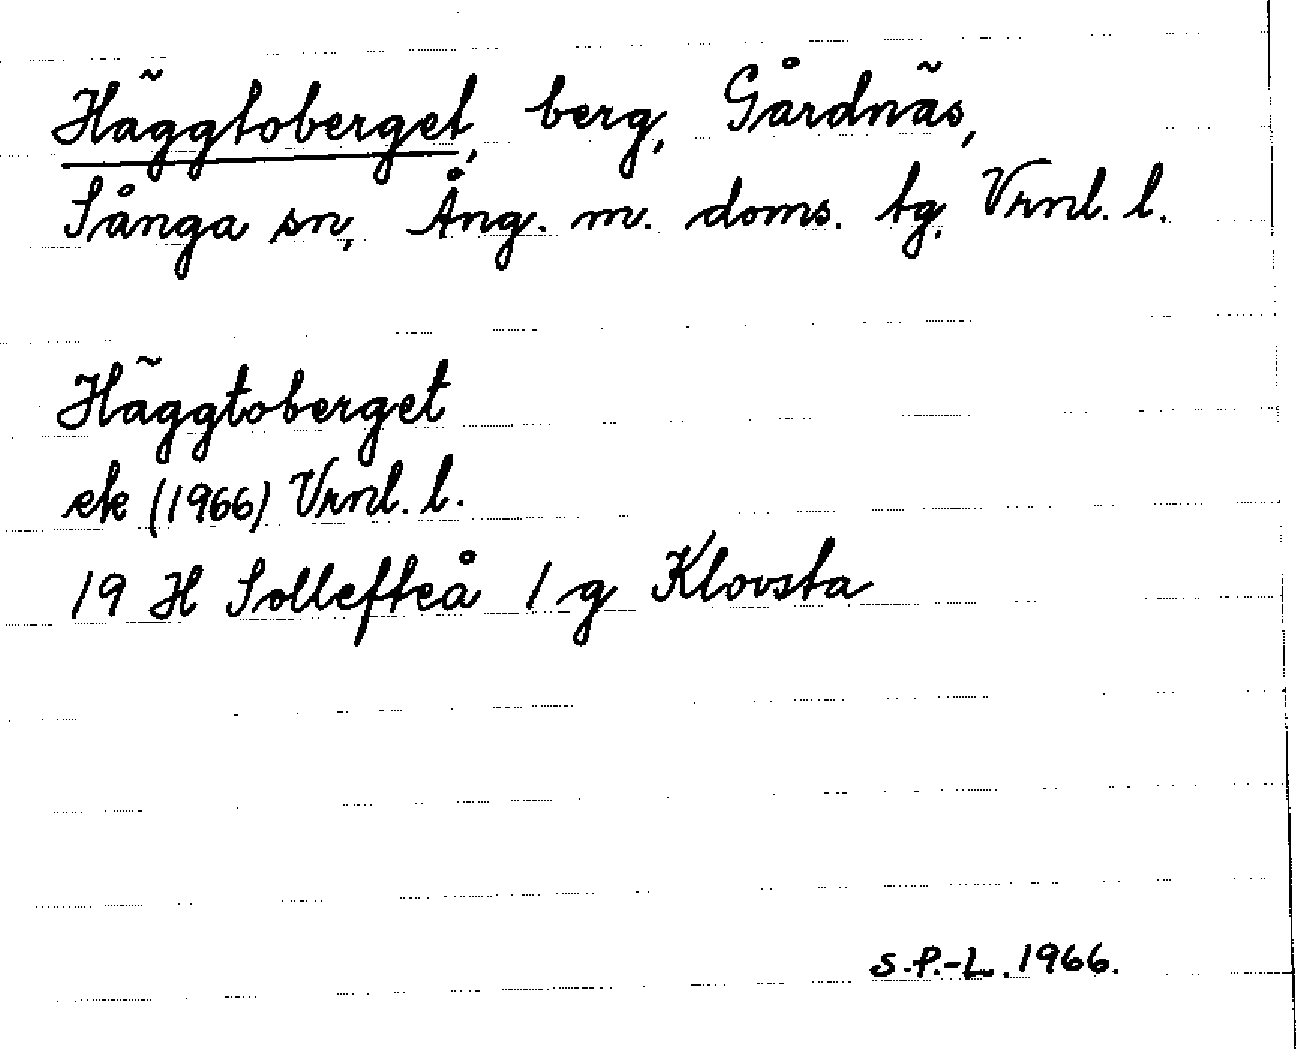 Häggtoberget, berg, Gårdnäs,
Sånga sn, Ång. m. doms. tg, Vrnl. l.
Häggtoberget
ek (1966) Vrnl. l.
19 H Sollefteå 1 g Klovsta
S.P.-L. 1966.